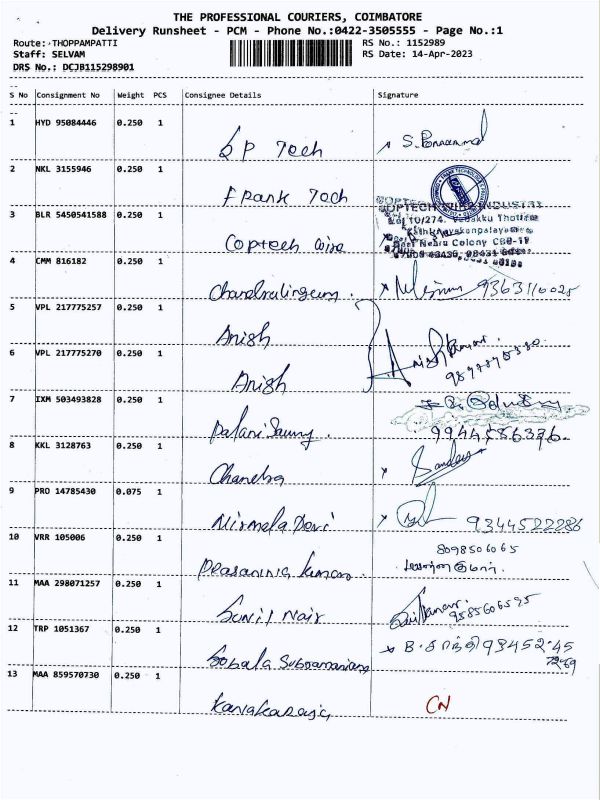 THE PROFESSIONAL COURIERS, COIMBATORE
Delivery Runsheet - PCM - Phone No.:0422-3505555 - Page No.:1
Route: THOPPAMPATTI RS No.: 1152989
Staff: SELVAM RS Date: 14-Apr-2023
DRS No.: DCJB115298901
S No Consignment No Weight PCS Consignee Details Signature
1 HYD 95084446 0.250 1
SP Tech
2 NKL 3155946 0.250 1
Frank Tech
3 BLR 5450541588 0.250 1
COPTECH WIRE INDUSTRY
Coptech wire
4 CMM 816182 0.250 1
Chandralingam. 9363110025
5 VPL 217775257 0.250 1
Anish
6 VPL 217775270 0.250 1
Anish
7 IXM 503493828 0.250 1
Palani Samy.
8 KKL 3128763 0.250 1
Chandra
9 PRO 14785430 0.075 1
Nirmala Devi 9344522286
10 VRR 105006 0.250 1
8098506065
Prasanna kumar.
11 MAA 298071257 0.250 1
Sunil Nair 9585606595
12 TRP 1051367 0.250 1
B. காந்தி 93452 45
Gobala Subramaniam
13 MAA 859570730 0.250 1
Kanakaraj CN